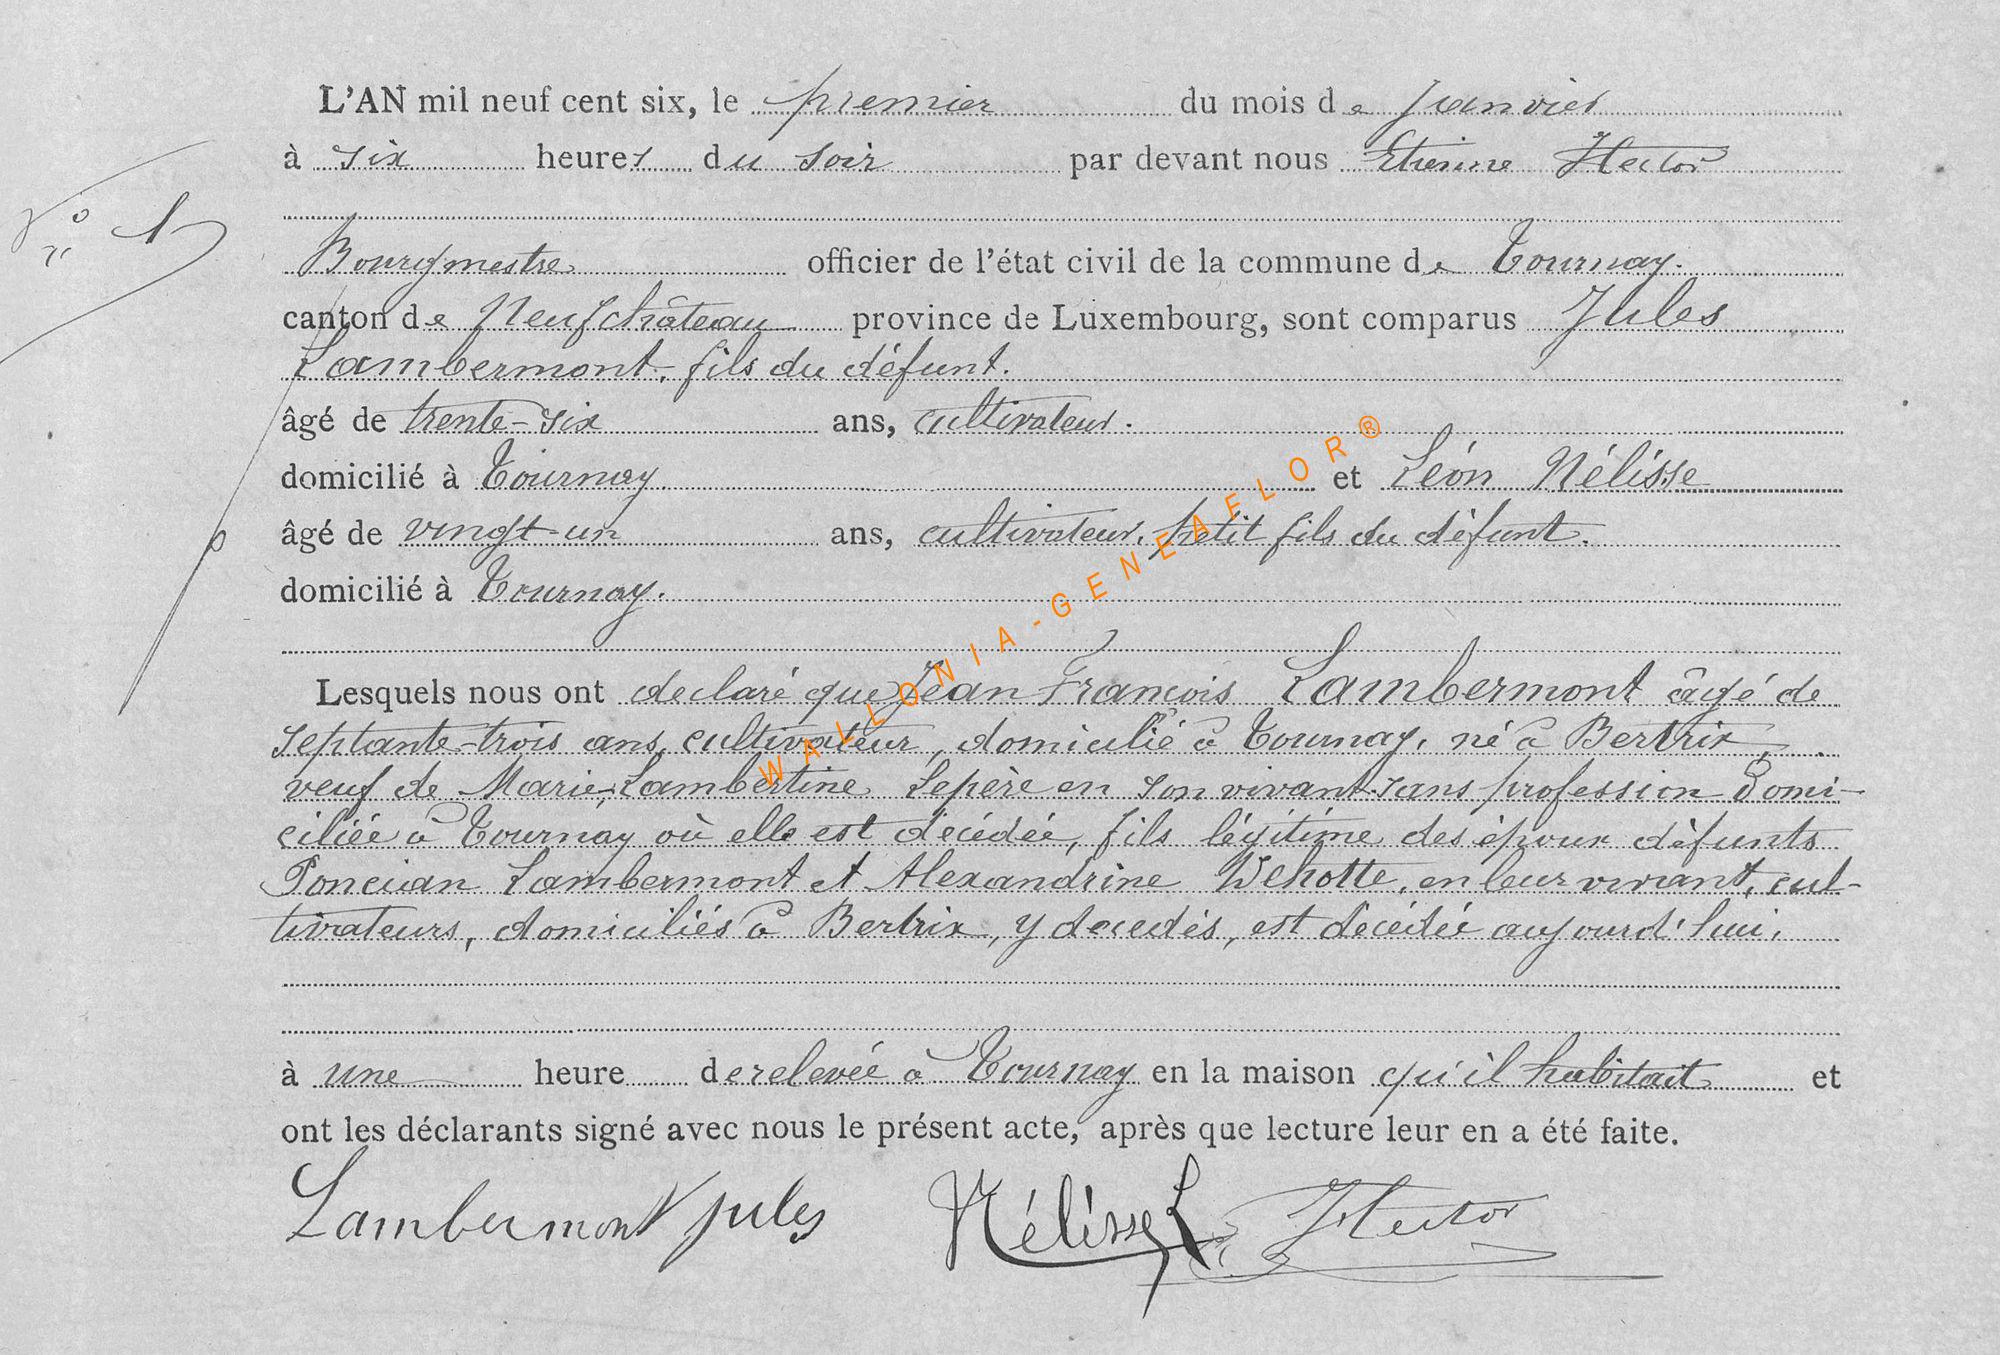 L'AN mil neuf cent six, le premier du mois de Janvier
à six heures du soir par devant nous Etienne Hector
N° 1
Bourgmestre officier de l'état civil de la commune de Tournay.
canton de Neufchâteau province de Luxembourg, sont comparus Jules
Lambermont, fils du défunt.
âgé de trente-six ans, cultivateur.
domicilié à Tournay. et Léon Nélisse
âgé de vingt-un ans, cultivateur, petit fils du défunt.
domicilié à Tournay.
Lesquels nous ont declaré que Jean François Lambermont âgé de
septante-trois ans, cultivateur, domicilié à Tournay, né à Bertrix,
veuf de Marie, Lambertine Lepère en son vivant sans profession domi-
ciliée à Tournay où elle est décédée, fils légitime des époux défunts
Poncian Lambermont et Alexandrine Dehotte, en leur vivant, cul-
tivateurs, domiciliés à Bertrix, y decedés, est décédée aujourd'hui,
à une heure de relevée à Tournay en la maison qu'il habitait et
ont les déclarants signé avec nous le présent acte, après que lecture leur en a été faite.
Lambermont Jules Nélisse L E. Hector
WALLONIA-GENEAFLOR®